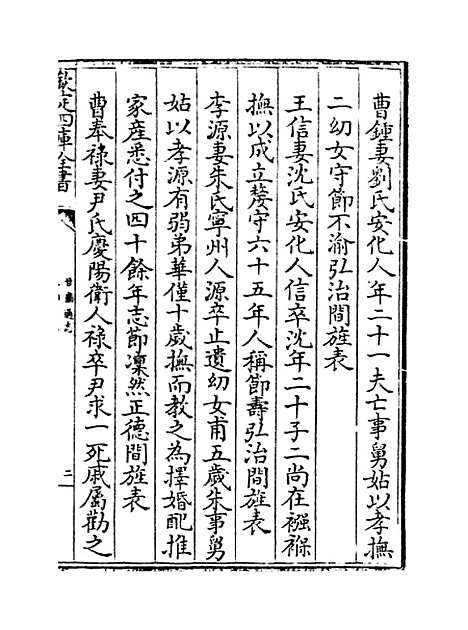 曹鍾妻劉氏安化人年二十一夫亡事舅姑以孝撫
二幼女守節不渝弘治間旌表
王信妻沈氏安化人信卒沈年二十子二尚在襁褓
撫以成立嫠守六十五年人稱節壽弘治間旌表
李源妻朱氏寧州人源卒止遺幼女甫五歲朱事舅
姑以孝源有弱弟華僅十歲撫而教之為擇婚配推
家産悉付之四十餘年志節凜然正德間旌表
曹奉祿妻尹氏慶陽衛人祿卒尹求一死戚屬勸之
欽定四庫全書
甘肅通志
二